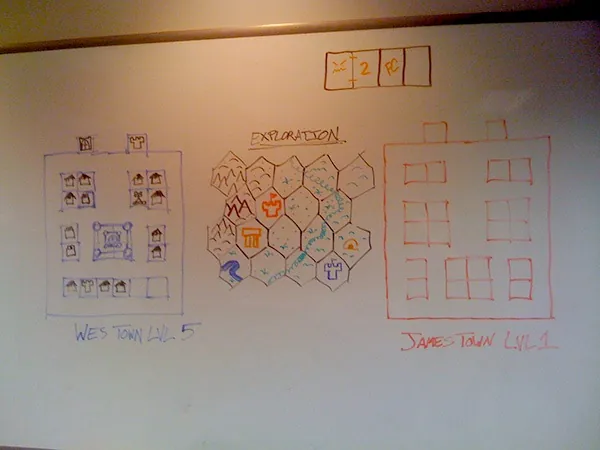 2 PC
EXPLORATION
WES TOWN LVL 5
JAMES TOWN LVL 1